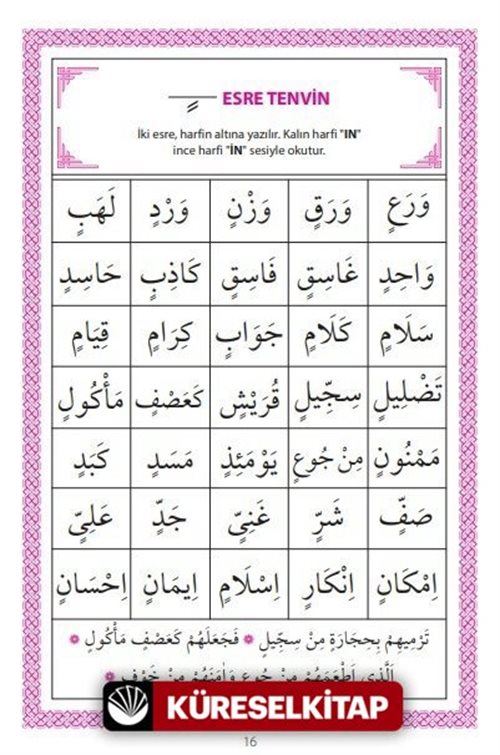 ESRE TENVİN
İki esre, harfin altına yazılır. Kalın harfi "IN"
ince harfi "İN" sesiyle okutur.
وَرَعٍ وَرَقٍ وَزْنٍ وَرْدٍ لَهَبٍ
وَاحِدٍ غَاسِقٍ فَاسِقٍ كَاذِبٍ حَاسِدٍ
سَلَامٍ كَلَامٍ جَوَابٍ كِرَامٍ قِيَامٍ
تَضْلِيلٍ سِجِّيلٍ قُرَيْشٍ كَعَصْفٍ مَأْكُولٍ
مَمْنُونٍ مِنْ جُوعٍ يَوْمَئِذٍ مَسَدٍ كَبَدٍ
صَفٍّ شَرٍّ غَنِىٍّ جَدٍّ عَلِىٍّ
اِمْكَانٍ اِنْكَارٍ اِسْلَامٍ اِيمَانٍ اِحْسَانٍ
تَرْمِيهِمْ بِحِجَارَةٍ مِنْ سِجِّيلٍ * فَجَعَلَهُمْ كَعَصْفٍ مَأْكُولٍ *
اَلَّذِى اَطْعَمَهُمْ مِنْ جُوعٍ وَاٰمَنَهُمْ مِنْ خَوْفٍ
KÜRESELKİTAP
16